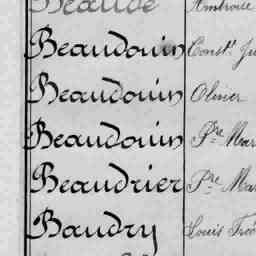 Beaude Ambroise
Beaudouin Const.t
Beaudouin Olivier
Beaudouin P.re Mar
Beaudrier P.re Mar
Baudry Louis